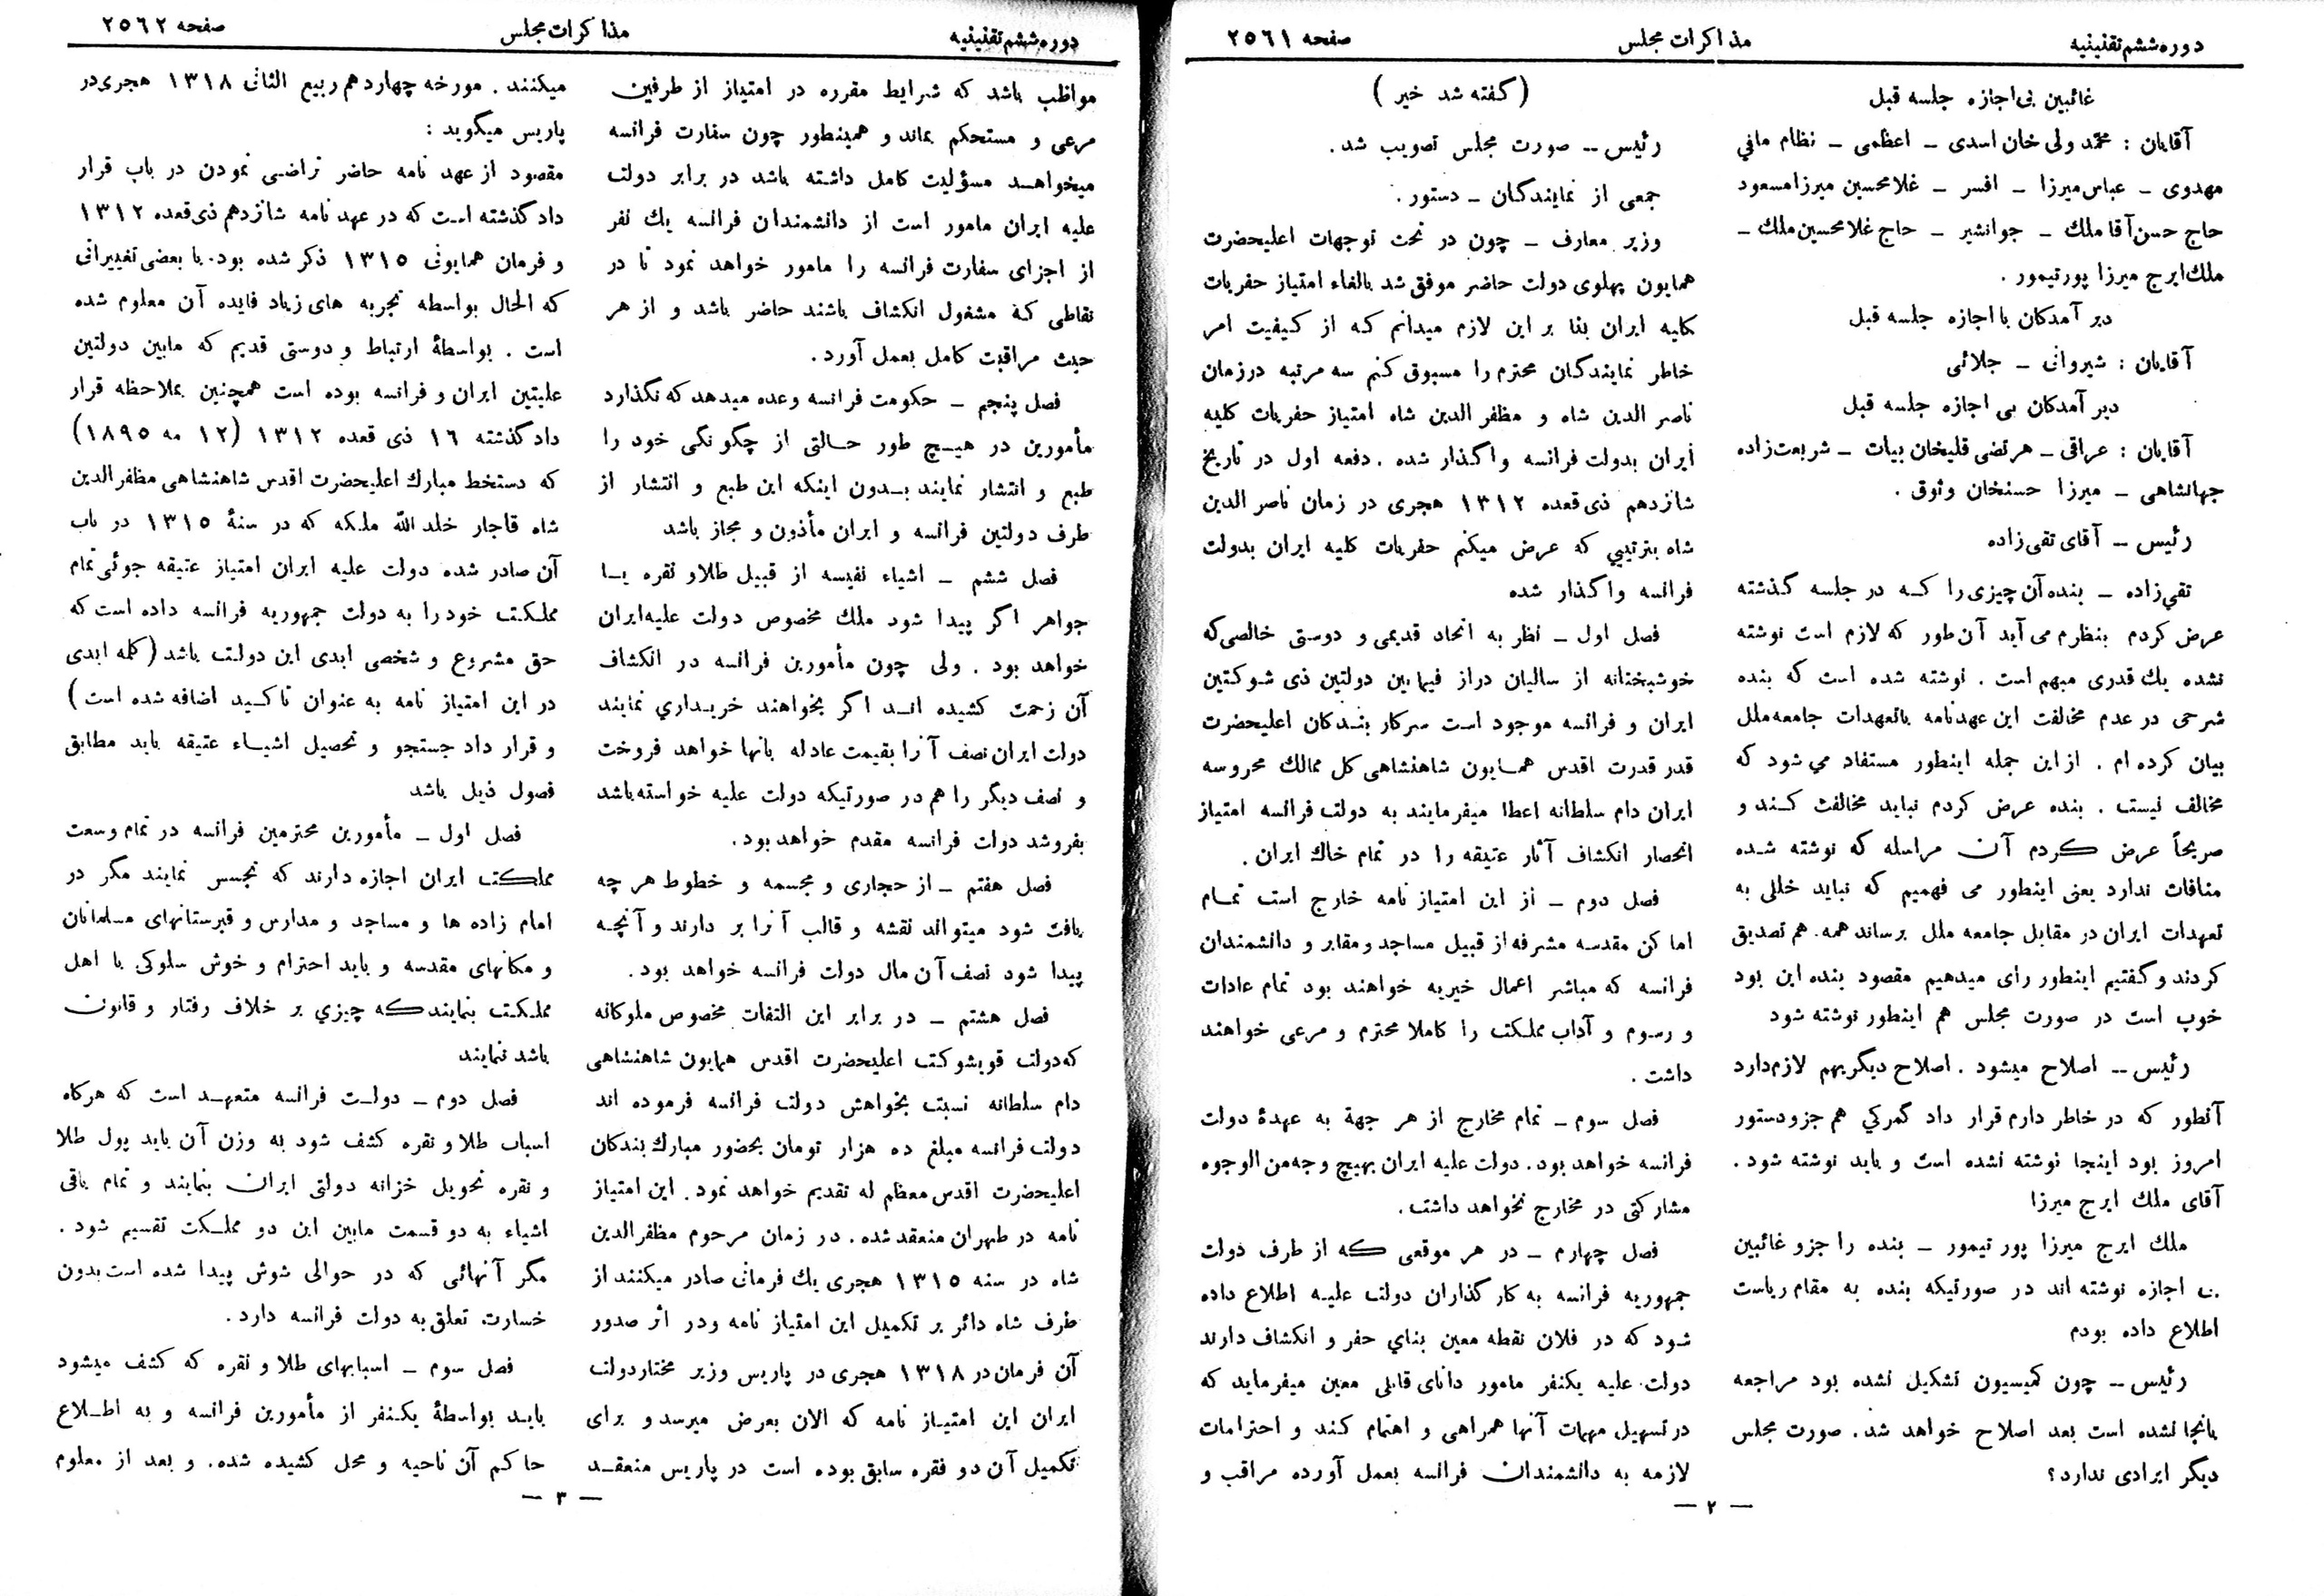 دوره ششم تقنینیه
مذاکرات مجلس
صفحه ۲۵۶۱
غائبین بی‌اجازه جلسه قبل
آقایان : محمّد ولی خان اسدی ـ اعظمی ـ نظام مافي
مهدوی ـ عباس میرزا ـ افسر ـ غلامحسین میرزا مسعود
حاج حسن آقا ملك ـ جوانشیر ـ حاج غلامحسین ملك ـ
ملك ایرج میرزا پورتیمور .
دیر آمدکان با اجازه جلسه قبل
آقایان : شیروانی ـ جلائی
دیر آمدکان بی اجازه جلسه قبل
آقایان : عراقی ـ مرتضی قلیخان بیات ـ شریعت‌زاده
جهانشاهی ـ میرزا حسنخان وثوق .
رئیس ـ آقای تقی‌زاده
تقي‌زاده ـ بنده آن چیزی را کـه در جلسه گذشته
عرض کردم بنظرم می آید آن طور که لازم است نوشته
نشده یك قدری مبهم است . نوشته شده است که بنده
شرحی در عدم مخالفت این عهدنامه باتعهدات جامعه ملل
بیان کرده ام . از این جمله اینطور مستفاد مي شود که
مخالف نیست . بنده عرض کردم نباید مخالفت کـند و
صریحاً عرض کردم آن مراسله که نوشته شده
منافات ندارد یعنی اینطور می فهمیم که نباید خللی به
تعهدات ایران در مقابل جامعه ملل برساند همه. هم تصدیق
کردند و گفتیم اینطور رأی میدهیم مقصود بنده این بود
خوب است در صورت مجلس هم اینطور نوشته شود
رئیس ـ اصلاح میشود . اصلاح دیگریهم لازم‌دارد
آنطور که در خاطر دارم قرار داد گمرکي هم جزو دستور
امروز بود اینجا نوشته نشده است و باید نوشته شود .
آقای ملك ایرج میرزا
ملك ایرج میرزا پور تیمور ـ بنده را جزو غائبین
بی اجازه نوشته اند در صورتیکه بنده به مقام ریاست
اطلاع داده بودم
رئیس ـ چون کمیسیون تشکیل نشده بود مراجعه
بانجا نشده است بعد اصلاح خواهد شد. صورت مجلس
دیگر ایرادی ندارد؟
(گفته شد خیر )
رئیس ـ صورت مجلس تصویب شد .
جمعی از نمایندگان ـ دستور .
وزیر معارف ـ چون در تحت توجهات اعلیحضرت
همایون پهلوی دولت حاضر موفق شد بالغاء امتیاز حفریات
کلیه ایران بنا بر این لازم میدانم کـه از کـیفیت امر
خاطر نمایندگان محترم را مسبوق کنم سه مرتبه درزمان
ناصر الدین شاه و مظفر الدین شاه امتیاز حفریات کلیه
ایران بدولت فرانسه واگذار شده . دفعه اول در تاریخ
شانزدهم ذی قعده ۱۳۱۲ هجری در زمان ناصر الدین
شاه بترتیبي که عرض میکنم حفریات کلیه ایران بدولت
فرانسه واگذار شده
فصل اول ـ نظر به اتحاد قدیمی و دوستی خالصی که
خوشبختانه از سالیان دراز فیمابین دولتین ذی شوکتین
ایران و فرانسه موجود است سرکار بندکان اعلیحضرت
قدر قدرت اقدس همایون شاهنشاهی کل ممالك محروسه
ایران دام سلطانه اعطا میفرمایند به دولت فرانسه امتیاز
انحصار انکشاف آثار عتیقه را در تمام خاك ایران .
فصل دوم ـ از این امتیاز نامه خارج است تمـام
اماکن مقدسه مشرفه از قبیل مساجد و مقابر و دانشمندان
فرانسه که مباشر اعمال خیریه خواهند بود تمام عادات
و رسوم و آداب مملکت را کاملا محترم و مرعی خواهند
داشت .
فصل سوم ـ تمام مخارج از هر جهة به عهدهٔ دولت
فرانسه خواهد بود. دولت علیه ایران بهیچ وجه‌من الوجوه
مشارکتی در مخارج نخواهد داشت .
فصل چهارم ـ در هر موقعی کـه از طرف دولت
جمهوریه فرانسه به کارگذاران دولت علیـه اطلاع داده
شود که در فلان نقطه معین بنای حفر و انکشاف دارند
دولت علیه یکنفر مامور دانای قابلی معین میفرماید که
در تسهیل مهمات آنها همراهی و اهتمام کند و احترامات
لازمه به دانشمندان فرانسه بعمل آورده مراقب و
— ۲ —
دوره ششم تقنینیه
مذاکرات مجلس
صفحه ۲۵۶۲
مواظب باشد که شرایط مقرره در امتیاز از طرفین
مرعی و مستحکم بماند و همینطور چون سفارت فرانسه
میخواهـد مسؤلیت کامل داشته باشد در برابر دولت
علیه ایران مامور است از دانشمندان فرانسه یك نفر
از اجزای سفارت فرانسه را مامور خواهد نمود تا در
نقاطی که مشغول انکشاف باشند حاضر باشد و از هر
حیث مراقبت کامل بعمل آورد.
فصل پنجم ـ حکومت فرانسه وعده میدهد که نگذارد
مأمورین در هیـچ طور حـالتی از چگونگی خود را
طبع و انتشار نمایند بـدون اینکه این طبع و انتشار از
طرف دولتین فرانسه و ایران مأذون و مجاز باشد
فصل ششم ـ اشیاء نفیسه از قبیل طلاو نقره یـا
جواهر اگر پیدا شود ملك مخصوص دولت علیه‌ایران
خواهد بود . ولی چون مأمورین فرانسه در انکشاف
آن زحمت کشیده انـد اگر بخواهند خریـداري نمایند
دولت ایران نصف آنرا بقیمت عادله بانها خواهد فروخت
و نصف دیگر را هم در صورتیکه دولت علیه خواسته‌باشد
بفروشد دولت فرانسه مقدم خواهد بود.
فصل هفتم ـ از حجاری و مجسمه و خطوط هر چه
یافت شود میتواند نقشه و قالب آنرا بر دارند و آنچـه
پیدا شود نصف آن مال دولت فرانسه خواهد بود.
فصل هشتم ـ در برابر این التفات مخصوص ملوکانه
که‌دولت قویشوکت اعلیحضرت اقدس همایون شاهنشاهی
دام سلطانه نسبت بخواهش دولت فرانسه فرموده اند
دولت فرانسه مبلغ ده هزار تومان بحضور مبارك بندکان
اعلیحضرت اقدس معظم له تقدیم خواهد نمود. این امتیاز
نامه در طهران منعقد شده. در زمان مرحوم مظفرالدین
شاه در سنه ۱۳۱۵ هجری یك فرمانی صادر میکنند از
طرف شاه دائر بر تکمیل این امتیاز نامه و در اثر صدور
آن فرمان در ۱۳۱۸ هجری در پاریس وزیر مختار دولت
ایران این امتیـاز نامه که الان بعرض میرسد و برای
تکمیل آن دو فقره سابق بوده است در پاریس منعقـد
میکنند . مورخه چهاردهم ربیع الثانی ۱۳۱۸ هجری‌در
پاریس میگوید :
مقصود از عهد نامه حاضر تراضی نمودن در باب قرار
داد گذشته است که در عهد نامه شانزدهم ذی قعده ۱۳۱۲
و فرمان همایونی ۱۳۱۵ ذکر شده بود. با بعضی تغییراتی
که الحال بواسطه تجربه های زیاد فایده آن معلوم شده
است . بواسطهٔ ارتباط و دوستی قدیم که مابین دولتین
علیتین ایران و فرانسه بوده است همچنین بملاحظه قرار
داد گذشته ۱۶ ذی قعده ۱۳۱۲ (۱۲ مه ۱۸۹۵)
که دستخط مبارك اعلیحضرت اقدس شاهنشاهی مظفر الدین
شاه قاجار خلد الله ملکه که در سنهٔ ۱۳۱۵ در باب
آن صادر شده دولت علیه ایران امتیاز عتیقه جوئی تمام
مملکت خود را به دولت جمهوریه فرانسه داده است که
حق مشروع و شخصی ابدی این دولت باشد (کلمه ابدی
در این امتیاز نامه به عنوان تاکـید اضافه شده است )
و قرار داد جستجو و تحصیل اشیـاء عتیقه باید مطابق
فصول ذیل باشد
فصل اول ـ مأمورین محترمین فرانسه در تمام وسعت
مملکت ایران اجازه دارند که تجسس نمایند مگر در
امام زاده ها و مساجد و مدارس و قبرستانهای مسلمانان
و مکانهای مقدسه و باید احترام و خوش سلوکی با اهل
مملکت بنمایند که چیزي بر خلاف رفتار و قانون
باشد ننمایند
فصل دوم ـ دولـت فرانسه متعهـد است که هرکاه
اسباب طلا و نقره کشف شود به وزن آن باید پول طلا
و نقره تحویل خزانه دولتی ایران بنمایند و تمام باقی
اشیاء به دو قسمت مابین این دو مملکت تقسیم شود .
مگر آنهائی که در حوالی شوش پیدا شده است بدون
خسارت تعلق به دولت فرانسه دارد.
فصل سوم ـ اسبابهای طلا و نقره که کشف میشود
بایـد بواسطهٔ یکنفر از مأمورین فرانسه و به اطـلاع
حاکم آن ناحیه و محل کشیده شده. و بعد از معلوم
— ۳ —